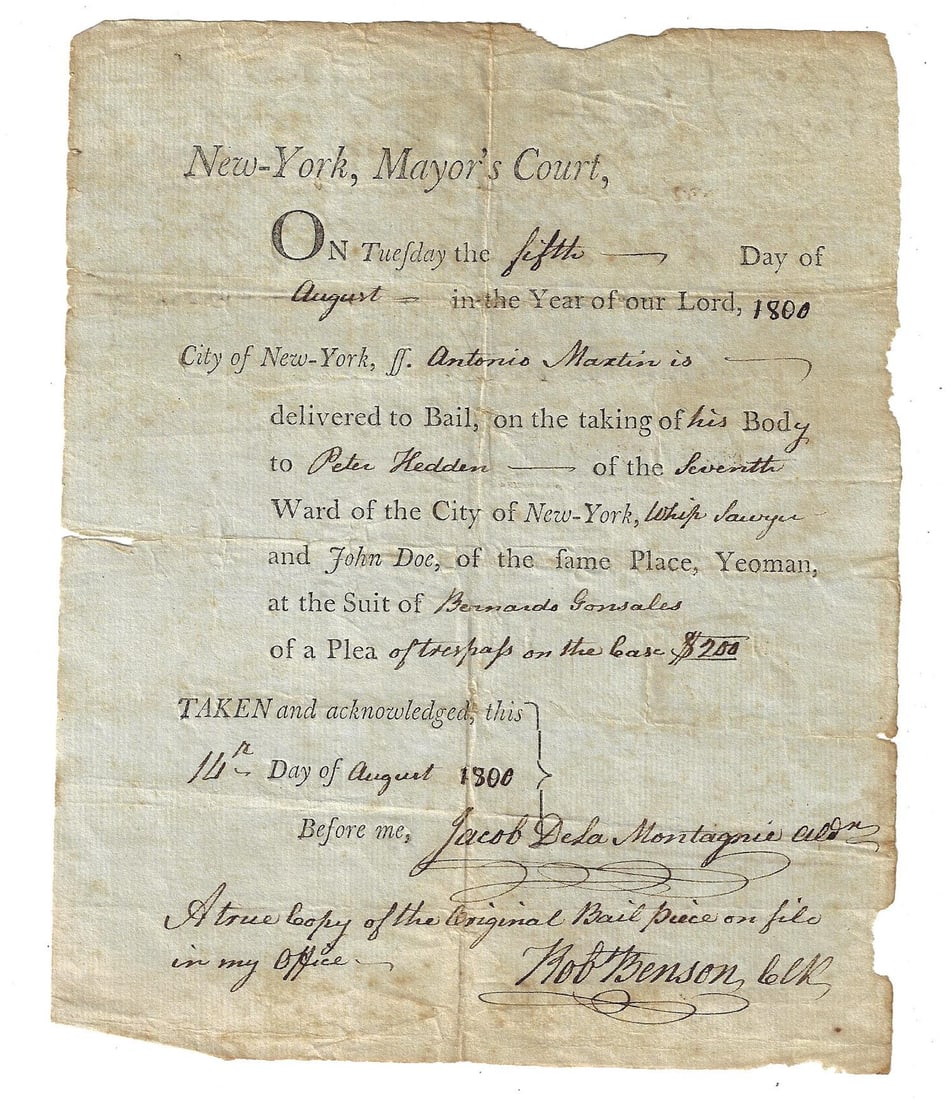 New-York, Mayor's Court,
ON Tueſday the fifth — Day of
August = in the Year of our Lord, 1800
City of New-York, ſſ. Antonio Martin is —
delivered to Bail, on the taking of his Body
to Peter Hedden — of the Seventh
Ward of the City of New-York, Whip Sawyer
and John Doe, of the ſame Place, Yeoman,
at the Suit of Bernardo Gonsales
of a Plea of trespaſs on the Case $200
TAKEN and acknowledged, this
14th Day of August 1800
Before me, Jacob DeLa Montagnie Aldn
A true Copy of the Original Bail piece on file
in my Office —
Robt Benson, Clk